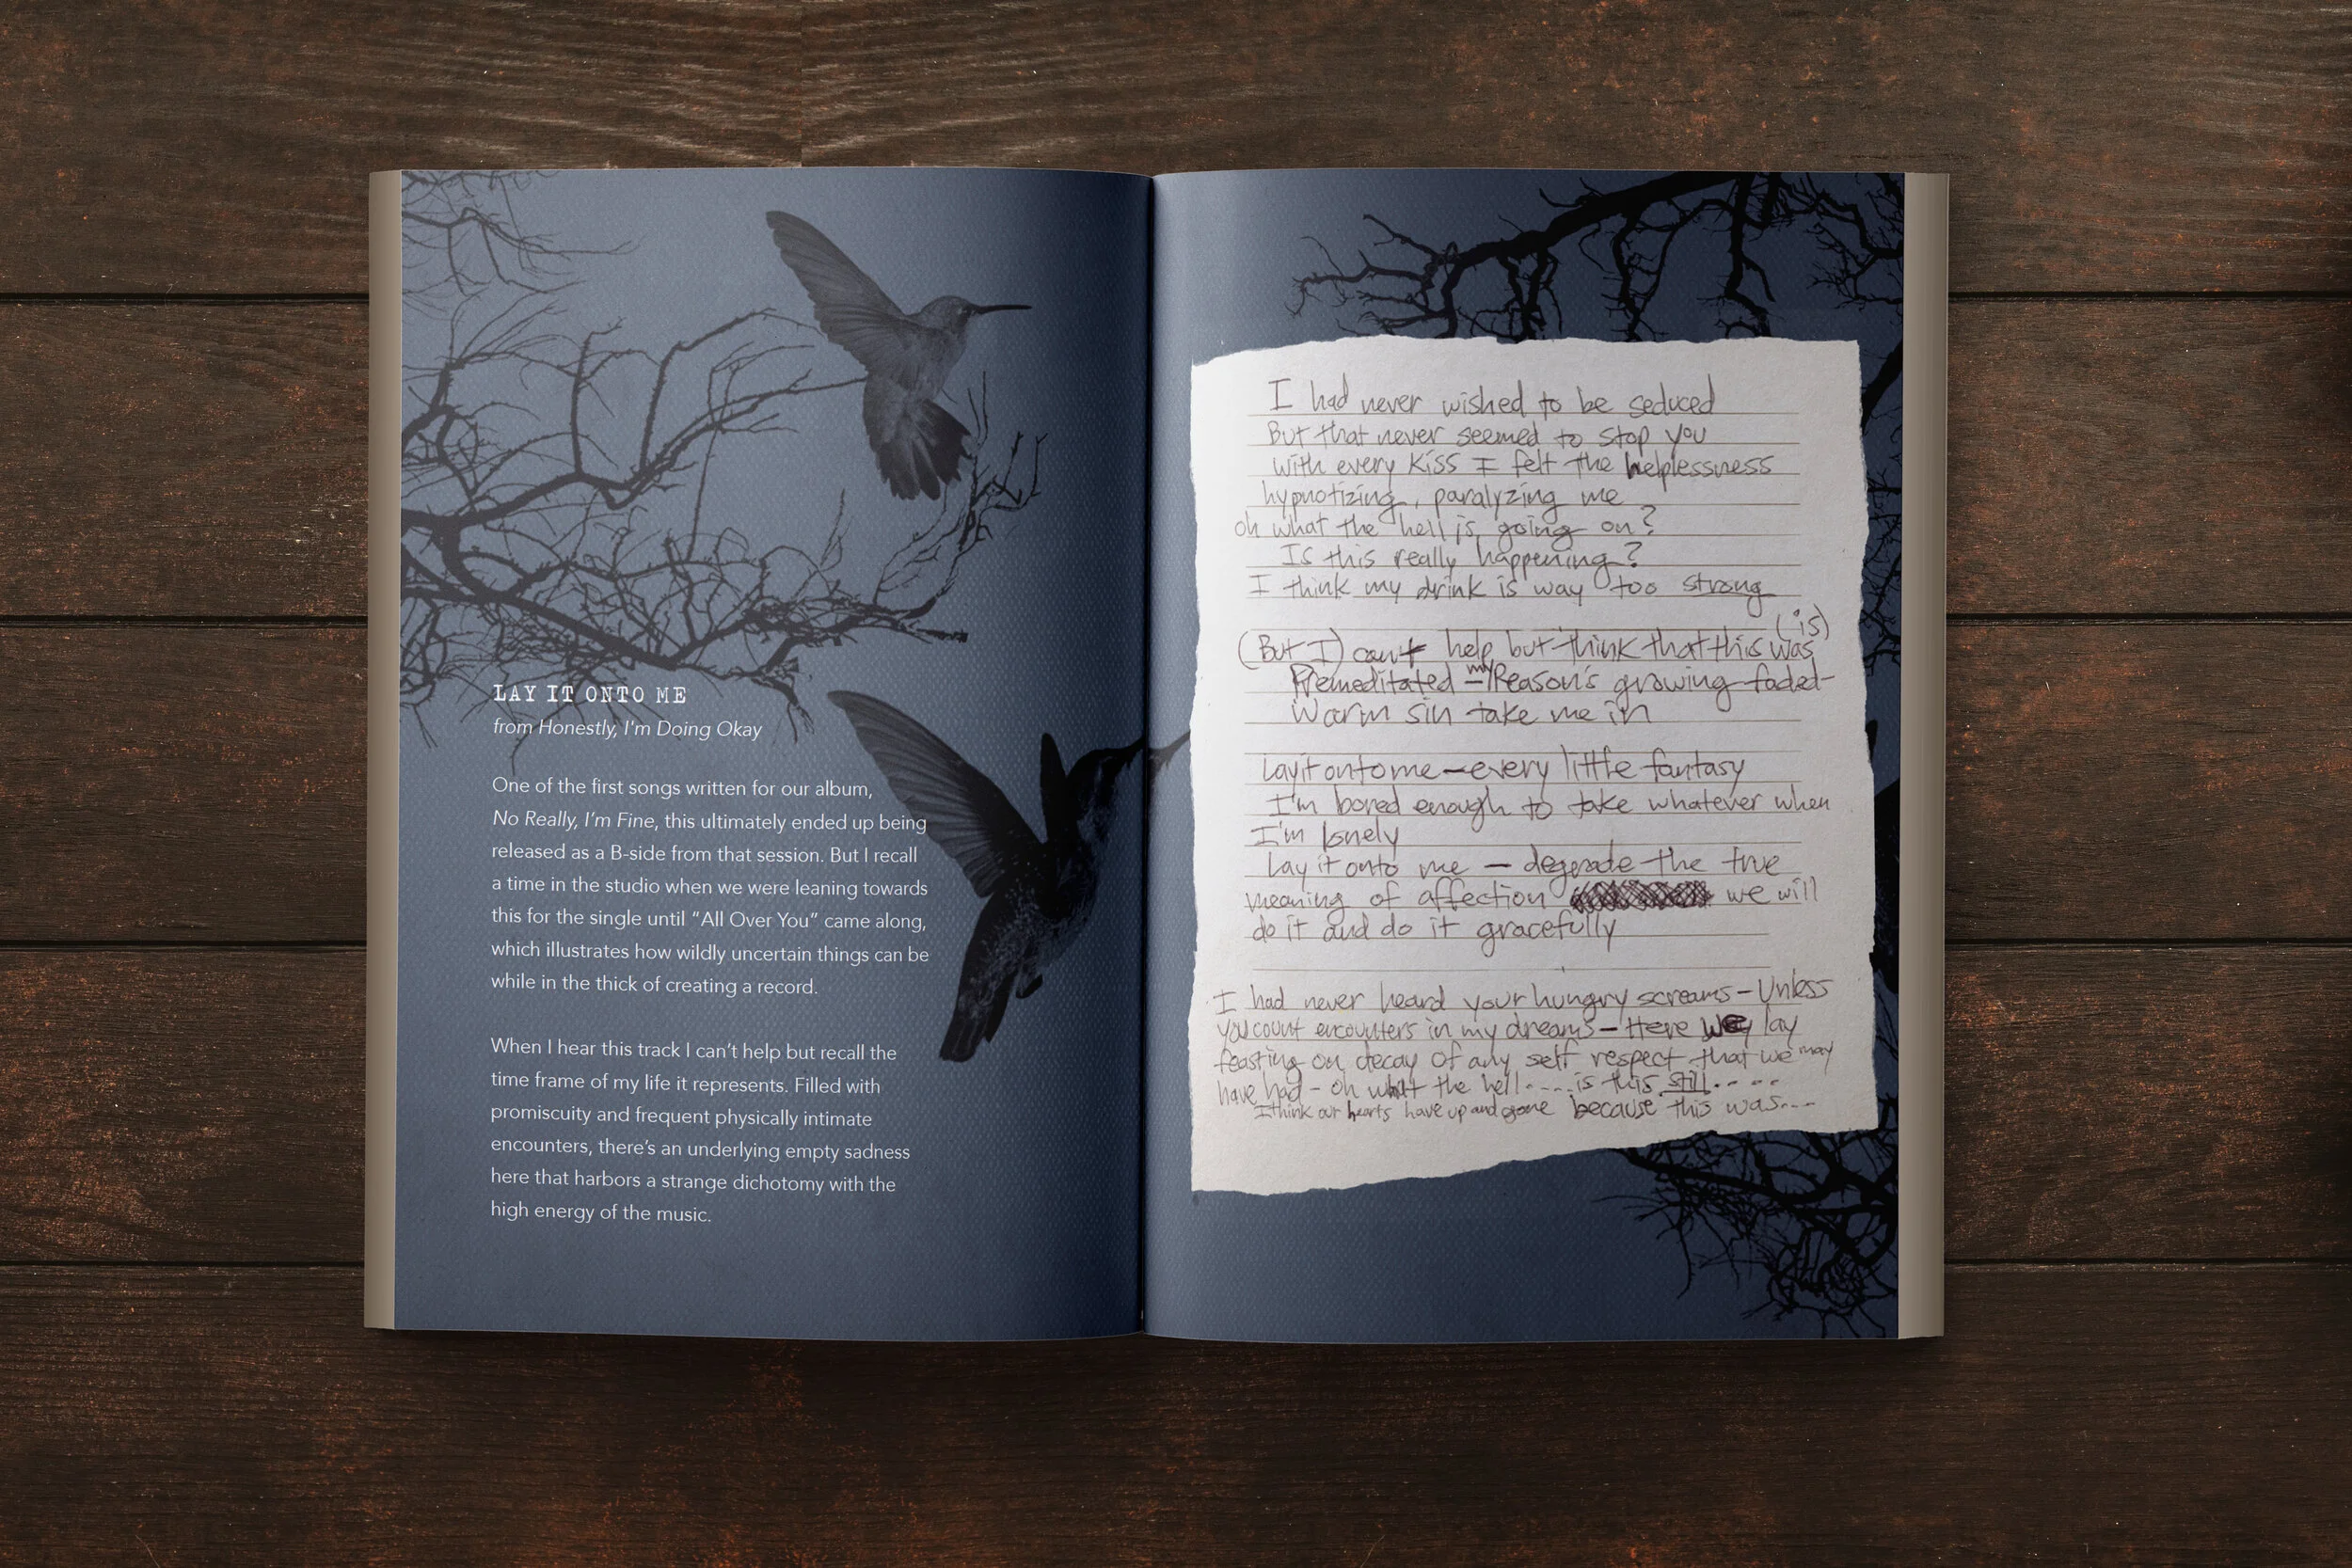 LAY IT ONTO ME
from Honestly, I'm Doing Okay
One of the first songs written for our album,
No Really, I'm Fine, this ultimately ended up being
released as a B-side from that session. But I recall
a time in the studio when we were leaning towards
this for the single until “All Over You” came along,
which illustrates how wildly uncertain things can be
while in the thick of creating a record.
When I hear this track I can't help but recall the
time frame of my life it represents. Filled with
promiscuity and frequent physically intimate
encounters, there's an underlying empty sadness
here that harbors a strange dichotomy with the
high energy of the music.
I had never wished to be seduced
But that never seemed to stop you
with every kiss I felt the helplessness
hypnotizing, paralyzing me
oh what the hell is going on?
Is this really happening?
I think my drink is way too strong
(is)
(But I) can't help but think that this was
Premeditated – my Reason's growing faded –
Warm sin take me in
Lay it onto me – every little fantasy
I'm bored enough to take whatever when
I'm lonely
Lay it onto me – degrade the true
meaning of affection we will
do it and do it gracefully
I had never heard your hungry screams – Unless
you count encounters in my dreams – Here we lay
feasting on decay of any self respect that we may
have had – oh what the hell .... is this still .....
I think our hearts have up and gone because this was....